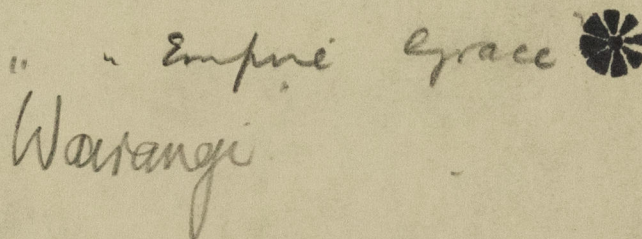 " " Empire Grace
Wairangi